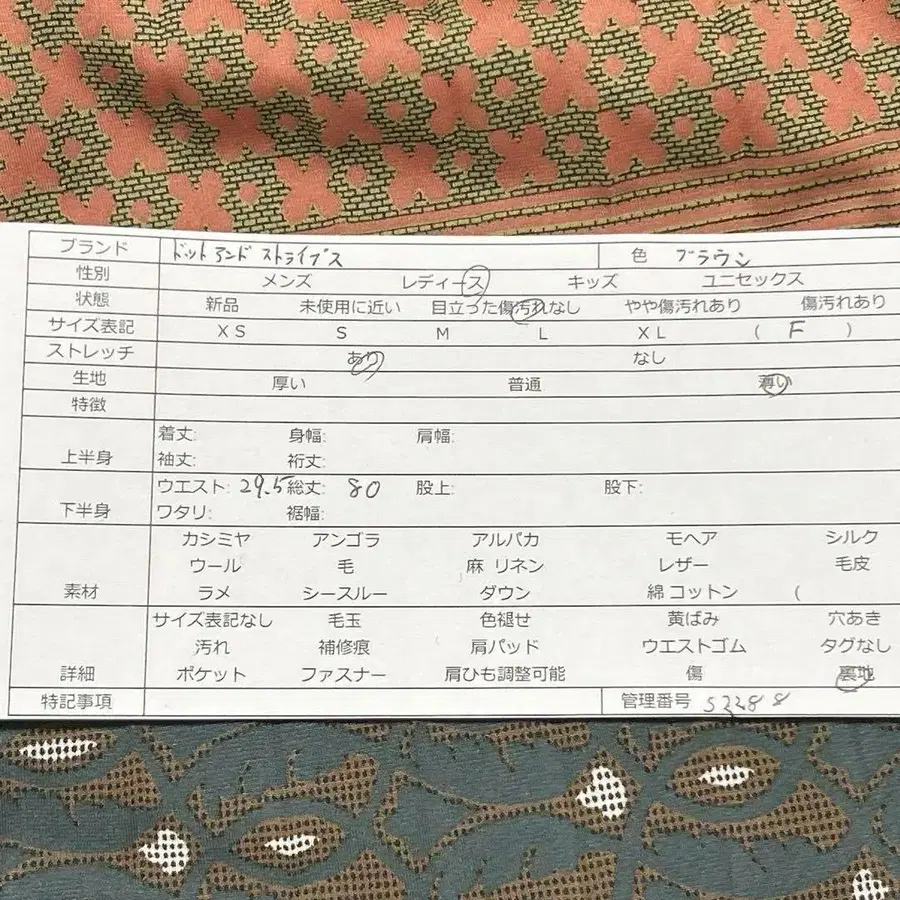 ブランド ドットアンドストライプス 色 ブラウン
性別 メンズ レディース キッズ ユニセックス
状態 新品 未使用に近い 目立った傷汚れなし やや傷汚れあり 傷汚れあり
サイズ表記 XS S M L XL ( F )
ストレッチ あり なし
生地 厚い 普通 薄い
特徴
上半身 着丈: 身幅: 肩幅:
袖丈: 裄丈:
下半身 ウエスト: 29.5 総丈: 80 股上: 股下:
ワタリ: 裾幅:
素材 カシミヤ アンゴラ アルパカ モヘア シルク
ウール 毛 麻 リネン レザー 毛皮
ラメ シースルー ダウン 綿 コットン (
詳細 サイズ表記なし 毛玉 色褪せ 黄ばみ 穴あき
汚れ 補修痕 肩パッド ウエストゴム タグなし
ポケット ファスナー 肩ひも調整可能 傷 裏地
特記事項 管理番号 S2288